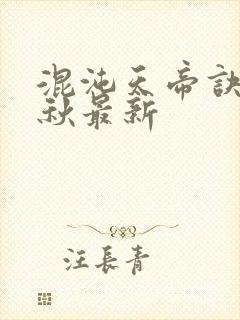 混沌天帝訣
秋最新
汪長青